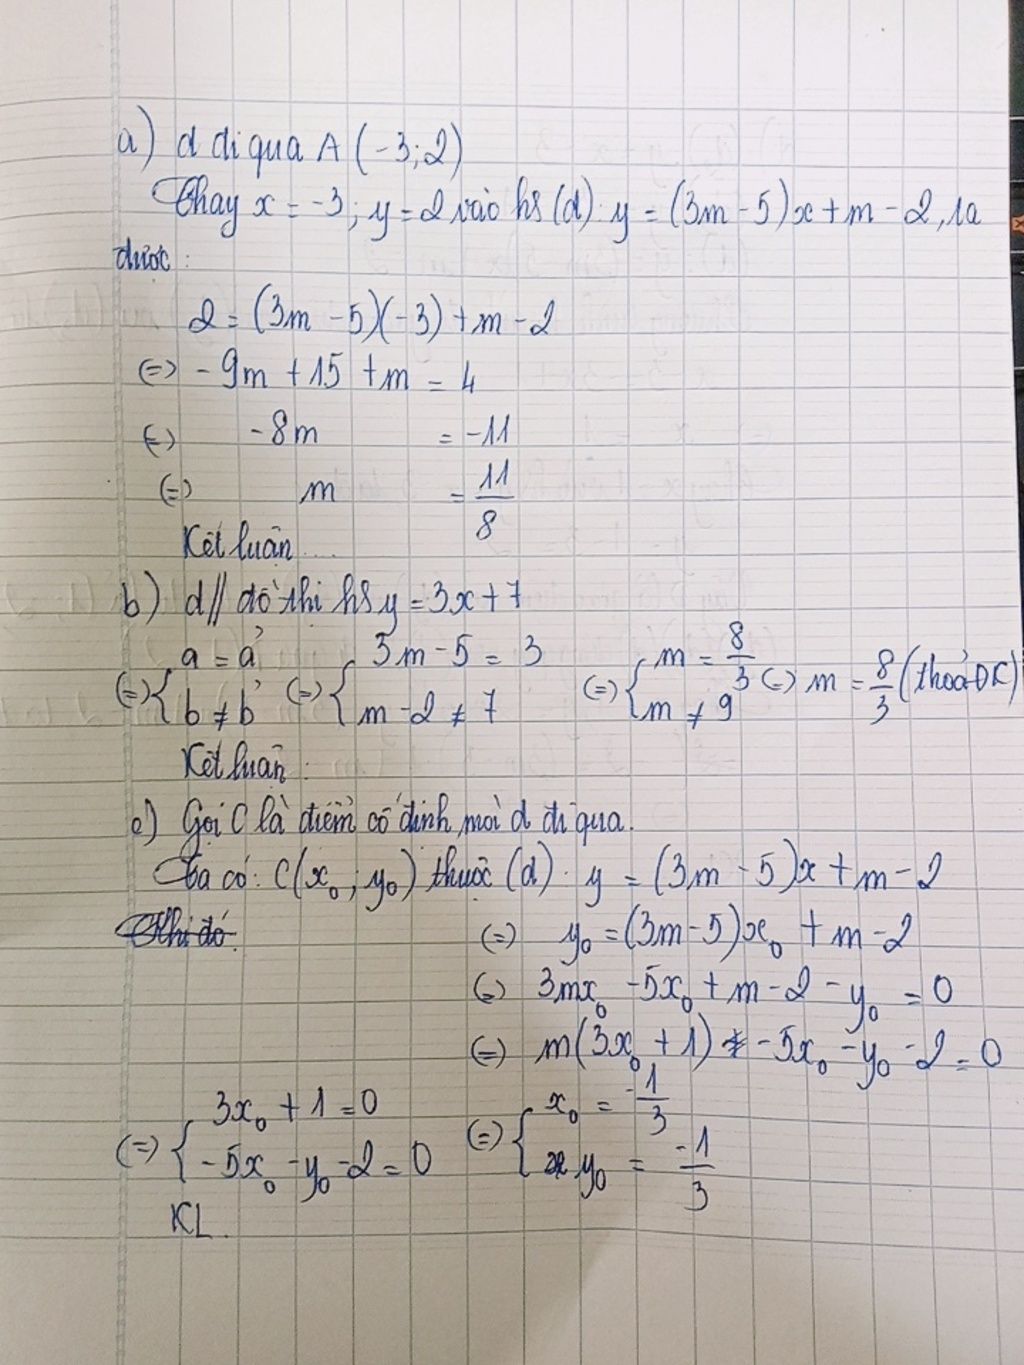 a) d đi qua A (-3;2)
Thay x = -3; y = 2 vào hs (d): y = (3m - 5)x + m - 2, ta
được:
2 = (3m - 5)(-3) + m - 2
(=) - 9m + 15 + m = 4
(=) -8m = -11
(=) m = 11/8
Kết luận ...
b) d // đồ thị hs y = 3x + 7
(=) { a = a' ; b ≠ b' (=) { 3m - 5 = 3 ; m - 2 ≠ 7 (=) { m = 8/3 ; m ≠ 9 (=) m = 8/3 (thoả ĐK)
Kết luận:
c) Gọi C là điểm cố định mà d đi qua.
Ta có: C(x₀; y₀) thuộc (d): y = (3m - 5)x + m - 2
(=) y₀ = (3m - 5)x₀ + m - 2
(=) 3mx₀ - 5x₀ + m - 2 - y₀ = 0
(=) m(3x₀ + 1) - 5x₀ - y₀ - 2 = 0
(=) { 3x₀ + 1 = 0 ; - 5x₀ - y₀ - 2 = 0 (=) { x₀ = -1/3 ; y₀ = -1/3
KL.